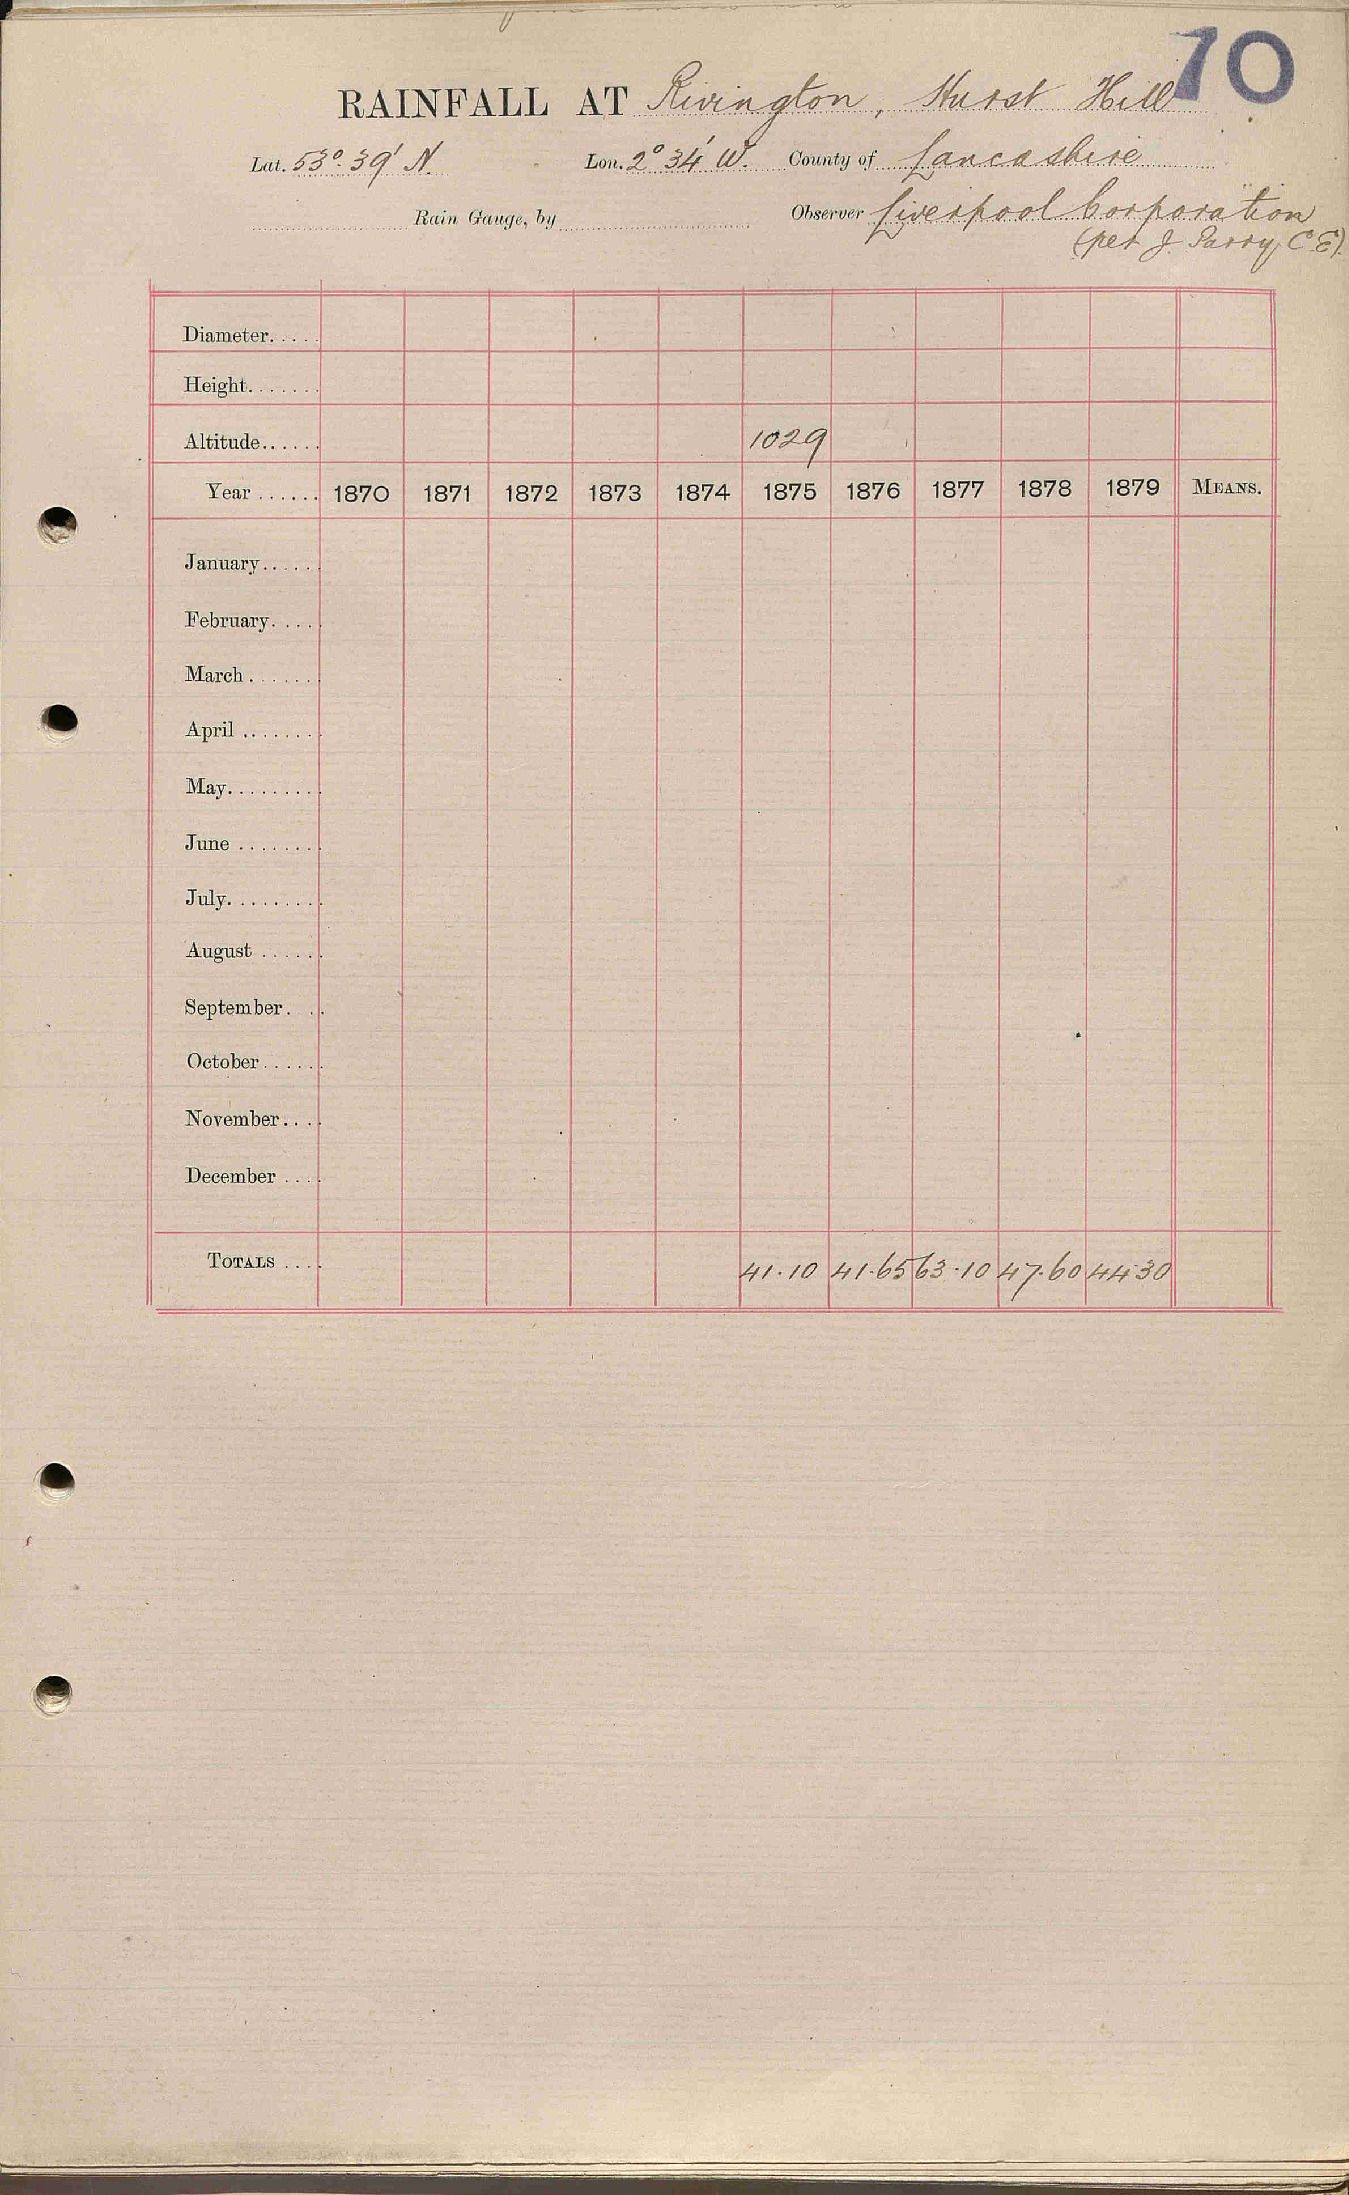 70
RAINFALL AT Rivington, Hurst Hill
Lat. 53° 39' N. Lon. 2° 34' W. County of Lancashire
Rain Gauge, by Observer Liverpool Corporation
(per J. Parry, C.E).
Diameter.....
Height.......
Altitude...... 1029
Year ...... 1870 1871 1872 1873 1874 1875 1876 1877 1878 1879 MEANS.
January......
February.....
March .......
April ........
May.........
June ........
July.........
August ......
September. ..
October......
November....
December ....
TOTALS .... 41.10 41.65 63.10 47.60 44.30